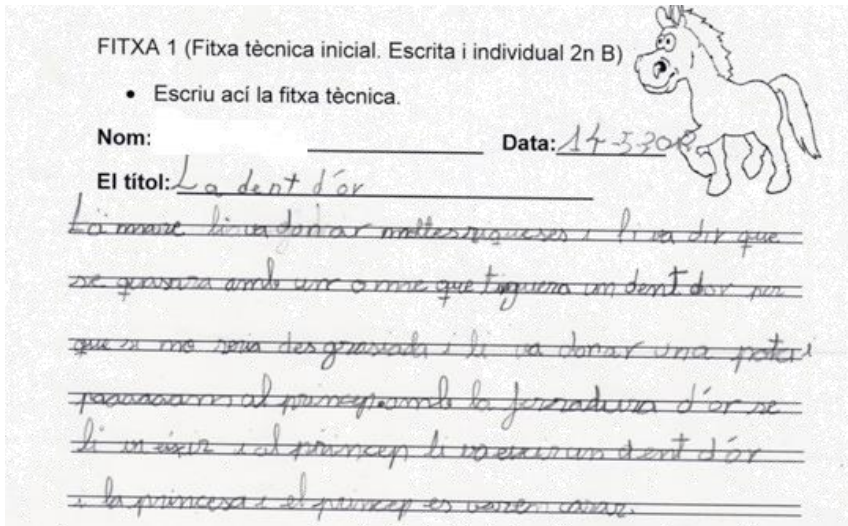 FITXA 1 (Fitxa tècnica inicial. Escrita i individual 2n B)
• Escriu ací la fitxa tècnica.
Nom: Data: 14-5
El títol: La dent d'or
La mare li va donar moltes riqueses i li va dir que
se quasara amb un ome que tinguera un dent dor per
que si mo seria desgrasiada i li va donar una
al princep amb la ferradura d'or se
li va eixir i al princep li va eixir un dent d'or
i la princesa i el princep es varem casar.